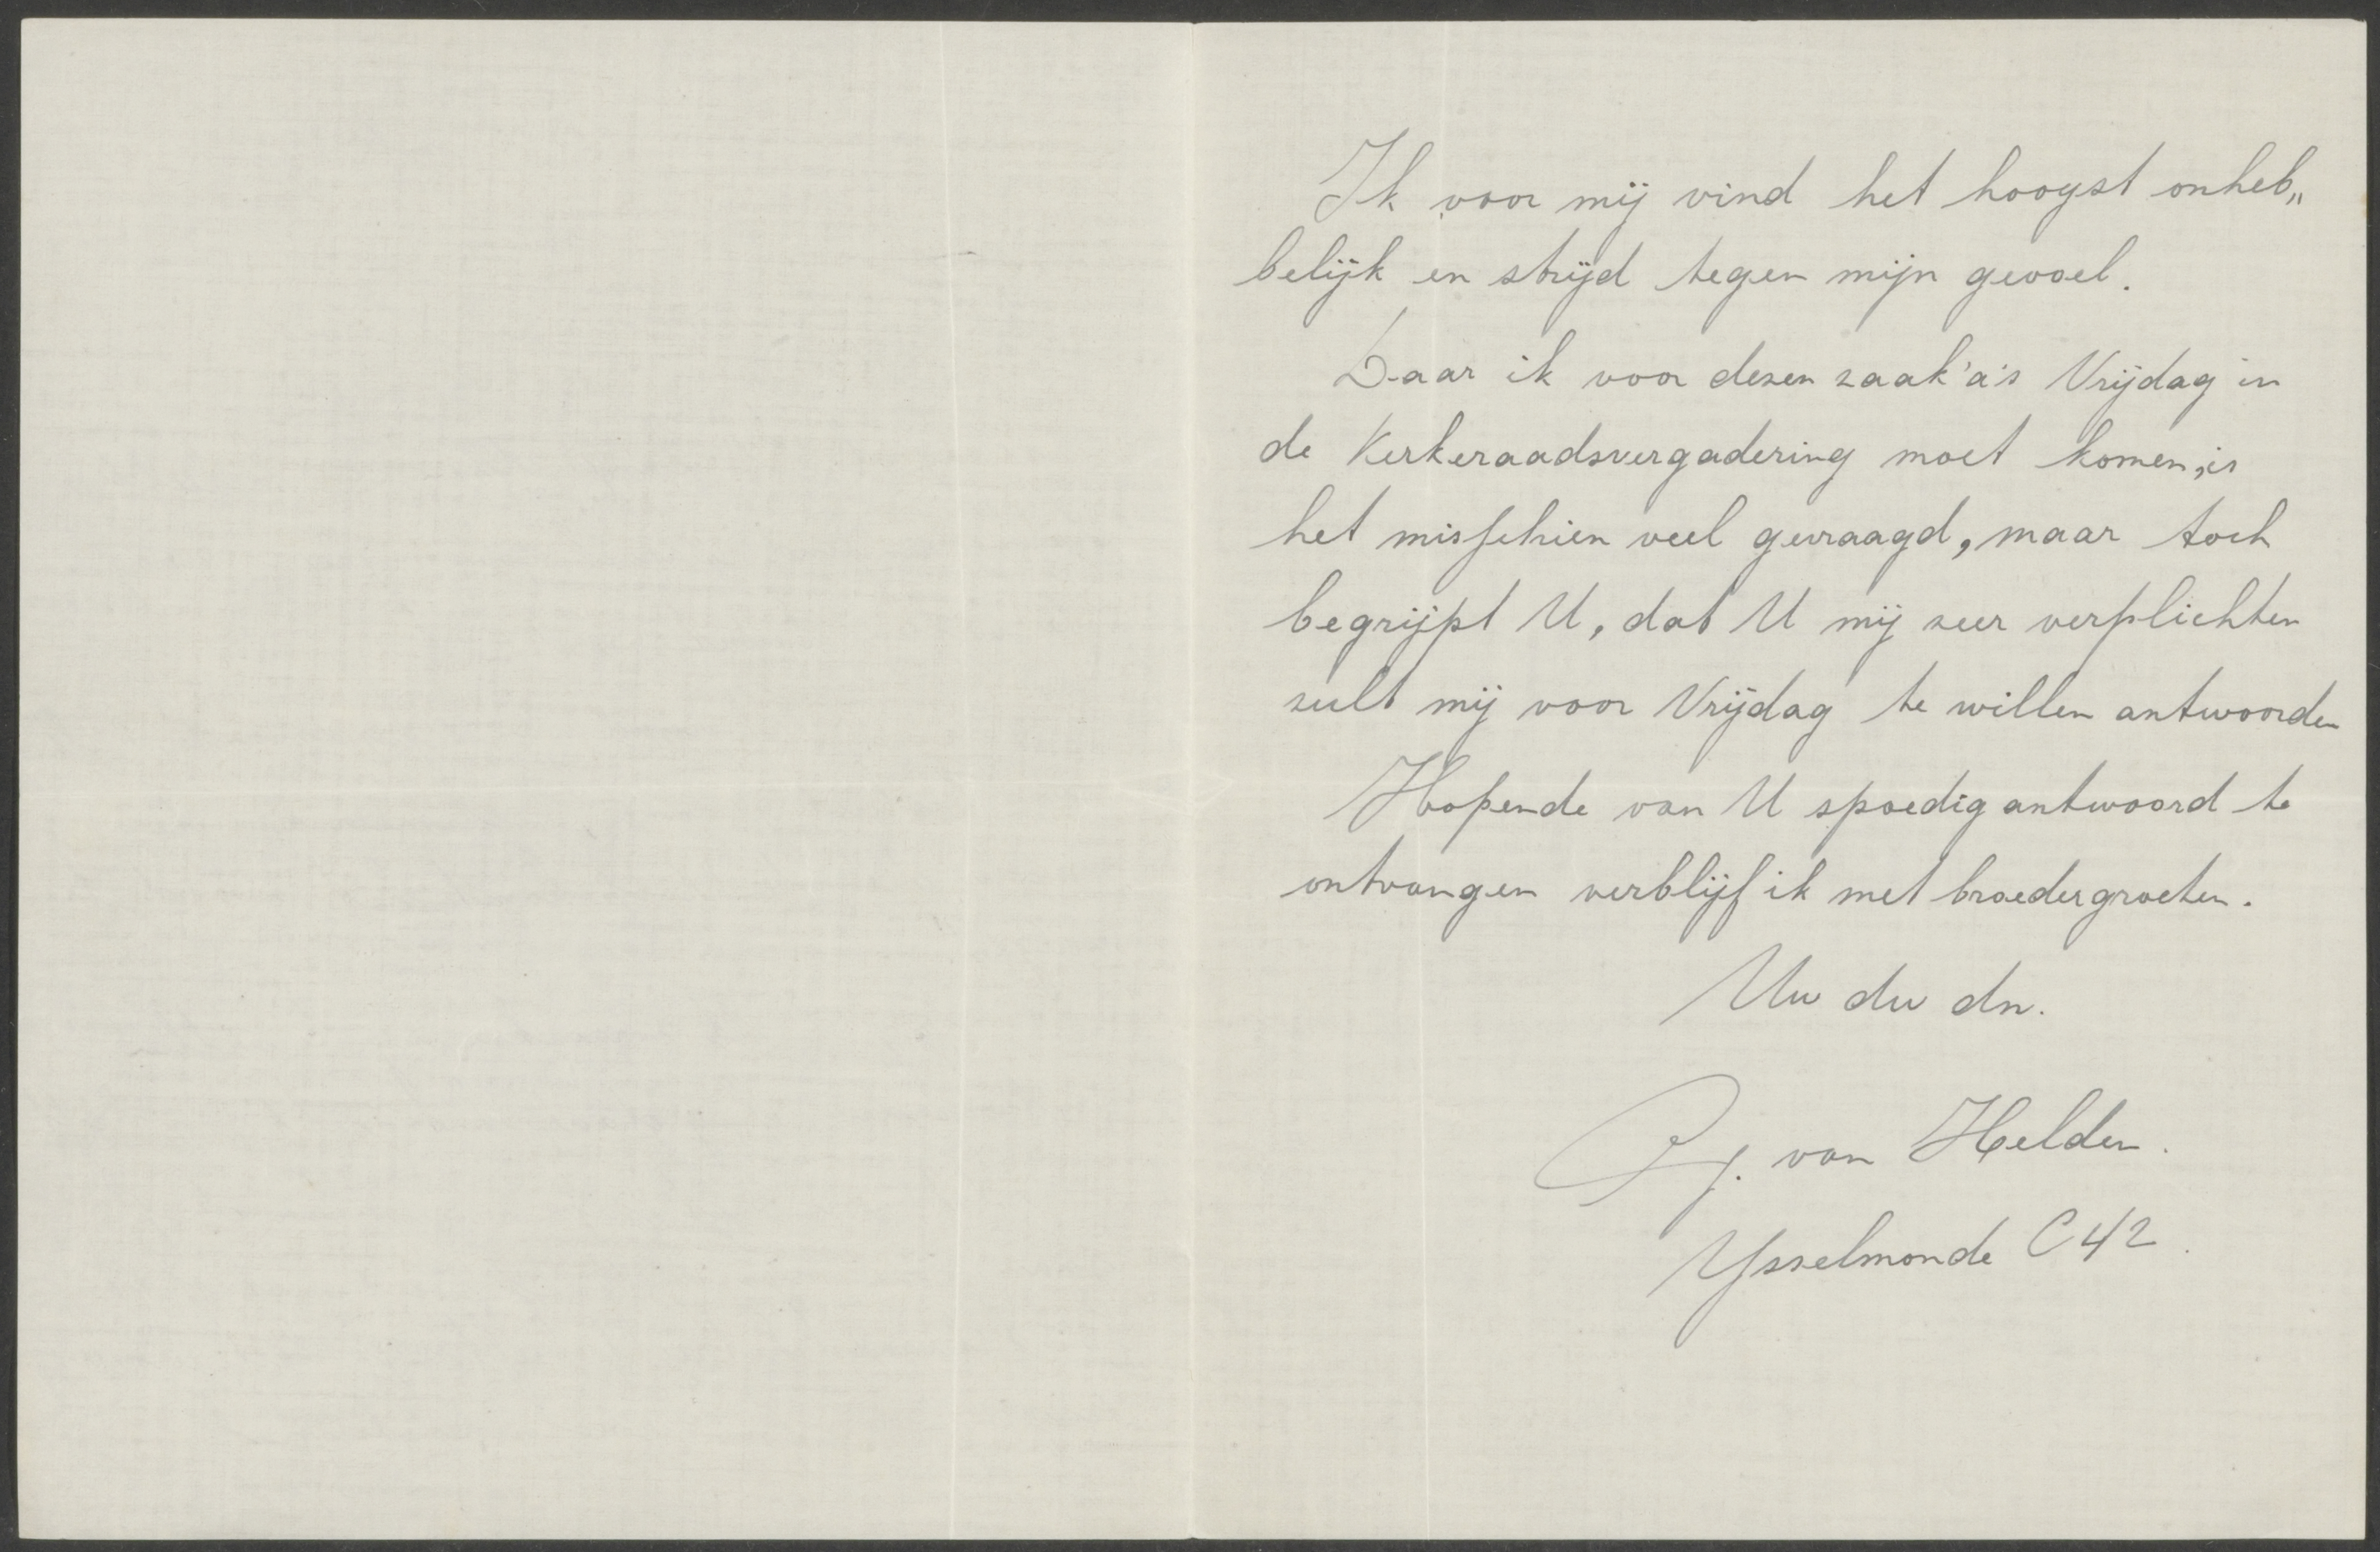 Ik voor mij vind het hoogst onheb„
belijk en strijd tegen mijn gevoel.
Daar ik voor dezen zaak a's Vrijdag in
de Kerkeraadsvergadering moet komen, is
het misschien veel gevraagd, maar toch
begrijpt U, dat U mij zeer verplichten
zult mij voor Vrijdag te willen antwoorden
Hopende van U spoedig antwoord te
ontvangen verblijf ik met broedergroeten.
Uw dw dn.
J. van Helden.
Ysselmonde C 42.